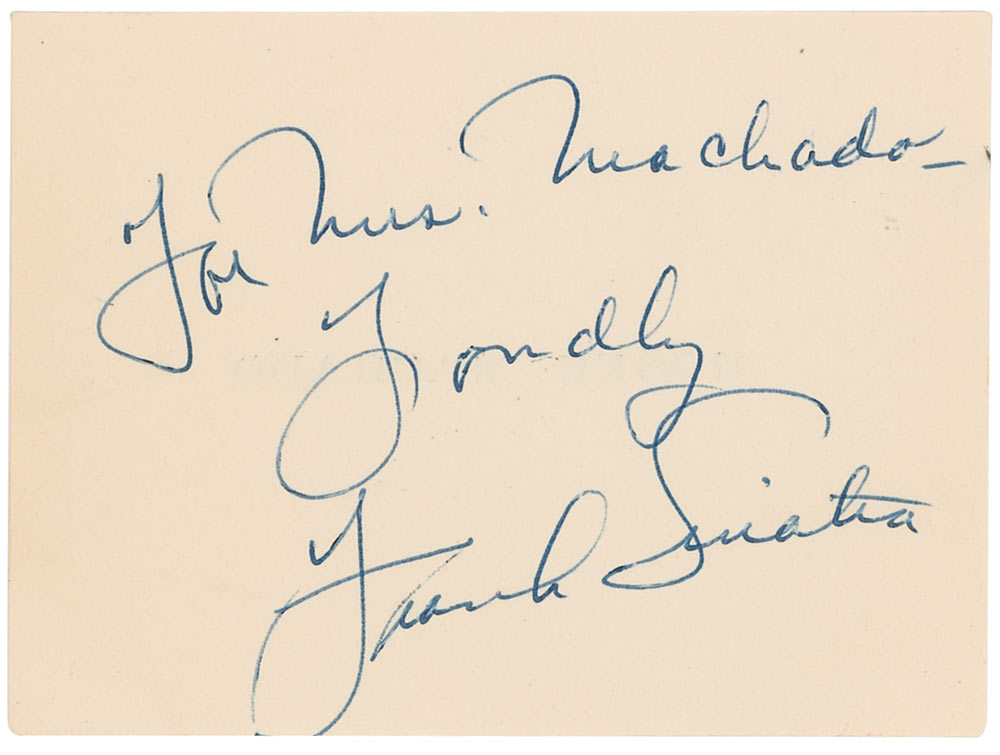 For Mrs. Machado –
Fondly
Frank Sinatra